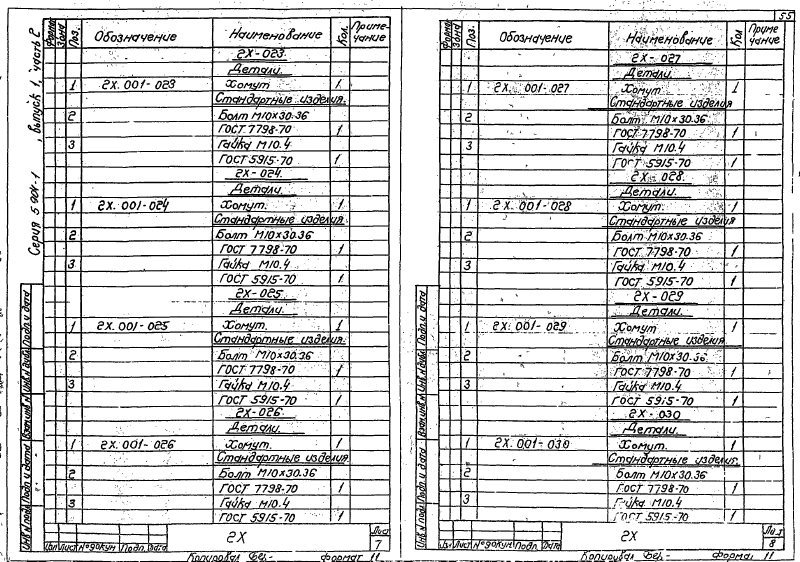 55
Серия 5.90х-1 , выпуск 1, часть 2
Форма Зона Поз. Обозначение Наименование Кол. Приме-чание
2Х-023
Детали.
1 2Х.001-023 Хомут 1
Стандартные изделия
2 Болт М10×30.36
ГОСТ 7798-70 1
3 Гайка М10.4
ГОСТ 5915-70 1
2Х-024.
Детали.
1 2Х.001-024 Хомут. 1
Стандартные изделия
2 Болт М10×30.36
ГОСТ 7798-70 1
3 Гайка М10.4
ГОСТ 5915-70 1
2Х-025.
Детали.
1 2Х.001-025 Хомут. 1
Стандартные изделия.
2 Болт М10×30.36
ГОСТ 7798-70 1
3 Гайка М10.4
ГОСТ 5915-70 1
2Х-026.
Детали.
1 2Х.001-026 Хомут. 1
Стандартные изделия.
2 Болт М10×30.36
ГОСТ 7798-70 1
3 Гайка М10.4
ГОСТ 5915-70 1
Инв.N подл. Подп. и дата Взам.инв.N Инв.N дубл. Подп. и дата
Лист №докум. Подп. Дата
2Х
Лист
7
Копировал Формат 11
Форма Зона Поз. Обозначение Наименование Кол Приме-чание
2Х-027
Детали.
1 2Х.001-027 Хомут 1
Стандартные изделия
2 Болт М10×30.36
ГОСТ 7798-70 1
3 Гайка М10.4
ГОСТ 5915-70 1
2Х-028.
Детали.
1 2Х.001-028 Хомут. 1
Стандартные изделия
2 Болт М10×30.36
ГОСТ 7798-70 1
3 Гайка М10.4
ГОСТ 5915-70 1
2Х-029
Детали.
1 2Х.001-029 Хомут 1
Стандартные изделия.
2 Болт М10×30.36
ГОСТ 7798-70 1
3 Гайка М10.4
ГОСТ 5915-70 1
2Х-030
Детали.
1 2Х.001-030 Хомут. 1
Стандартные изделия.
2 Болт М10×30.36
ГОСТ 7798-70 1
3 Гайка М10.4
ГОСТ 5915-70 1
Инв.N подл. Подп. и дата Взам.инв.N Инв.N дубл. Подп. и дата
Лист №докум. Подп. Дата
2Х
Лист
8
Копировал Формат 11